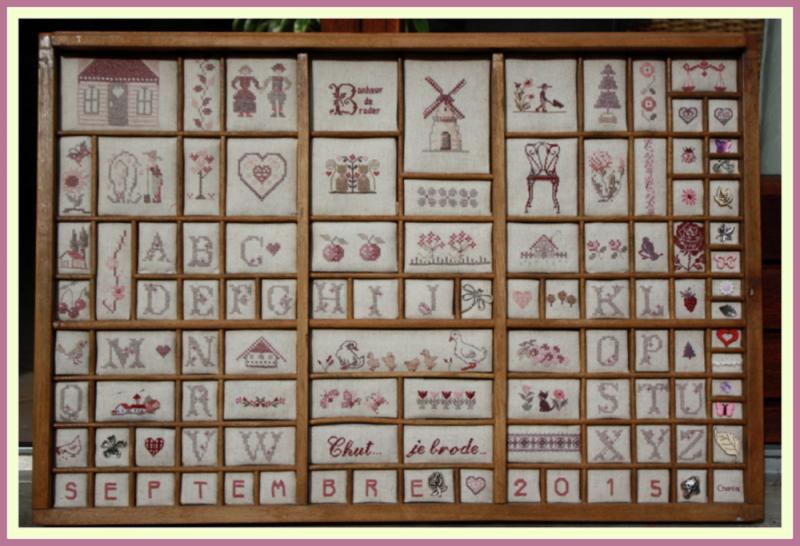 Bonheur
de
Broder
A B C
D E F G H I J K L
M N O P
Q R S T U
V W Chut... je brode... X Y Z
SEPTEMBRE 2015 Chantal